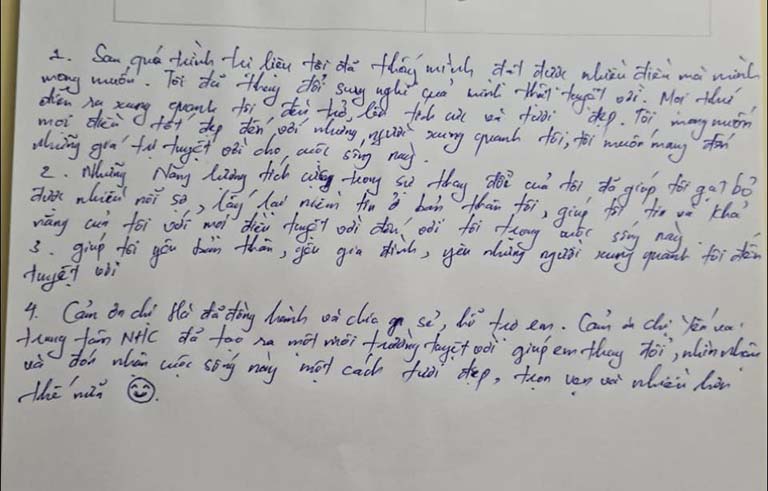 1. Sau quá trình trị liệu tôi đã thấy mình đạt được nhiều điều mà mình
mong muốn. Tôi đã thay đổi suy nghĩ của mình thật tuyệt vời. Mọi thứ
diễn ra xung quanh tôi đều trở lên tích cực và tươi đẹp. Tôi mong muốn
mọi điều tốt đẹp đến với những người xung quanh tôi, tôi muốn mang đến
những giá trị tuyệt vời cho cuộc sống này.
2. Những Năng lượng tích cực trong sự thay đổi của tôi đã giúp tôi gạt bỏ
được nhiều nỗi sợ, lấy lại niềm tin ở bản thân tôi, giúp tôi tin và khả
năng của tôi với mọi điều tuyệt vời đến với tôi trong cuộc sống này
3. giúp tôi yêu bản thân, yêu gia đình, yêu những người xung quanh tôi đến
tuyệt vời
4. Cảm ơn chị Hà đã đồng hành và chia sẻ, hỗ trợ em. Cảm ơn chị Yến và
trung tâm NHC đã tạo ra một môi trường tuyệt vời giúp em thay đổi, nhìn nhận
và đón nhận cuộc sống này một cách tươi đẹp, trọn vẹn và nhiều hơn
thế nữa